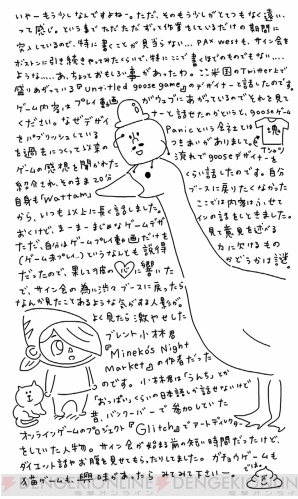 いやーもう少しなんですよねー。ただ、そのもう少しがとてつもなく遠い、
って感じ。というまでただただずっと作業をしているだけの期間に
突入しているので、特に書くことが見当らない…PAX westも、サイン会を
ボストンに引き続きやってみたくらいで、特にここで書くほどのものでもない…
ような……。あ、ちょっとおもしろい事があったわ。ここ米国のTwitter上で
盛りあがっている『Untitled goose game』のデザイナーと話したのです。
ゲーム内容はプレイ動画がウェブにあがっているのでそれを見て
ください。なぜデザイナーと話せたのかというと、gooseゲーム
をパブリッシュしているPanicという会社とは
を通じてつきあいがありまして。
Tシャツ
ゲームの感想を聞かれた流れでgooseデザイナーを
紹介され、そのまま20分くらい話したのです。自分
自身も『Wattam』ブースに戻りたくなかった
から、いつも以上に長く話しました。ここでは内容はふせて
おくけど、まーまーまじめなゲームデザインの話をしてきました。
ただ、自分はゲームプレイ動画だけを見て意見を述べる
(ゲーム未プレイ…)というなんとも説得力に欠けるもの
だったので、果して彼の心に響いたかどうかは謎。
で、サイン会の為に渋々ブースに戻ったら
なんか見たことあるような気がする人影が。
よく見たら激ヤセした
ブレント小林君
『Mineko's Night
Market』の作者だった
のです。小林君は「うんち」とか
「おっぱい」くらいの日本語しか話せないけど
昔、バンクーバーで参加していた
オンラインゲームのプロジェクト『Glitch』でアートディレクター
をしていた人物。サイン会が始まる前の短い時間だったけど、
ダイエット話やお腹を見せてもらったりしました。ガチョウゲームも
猫ゲームも、興味があったらみてみて下さいー。
では
©KADOKAWA
DENGEKIONLINE